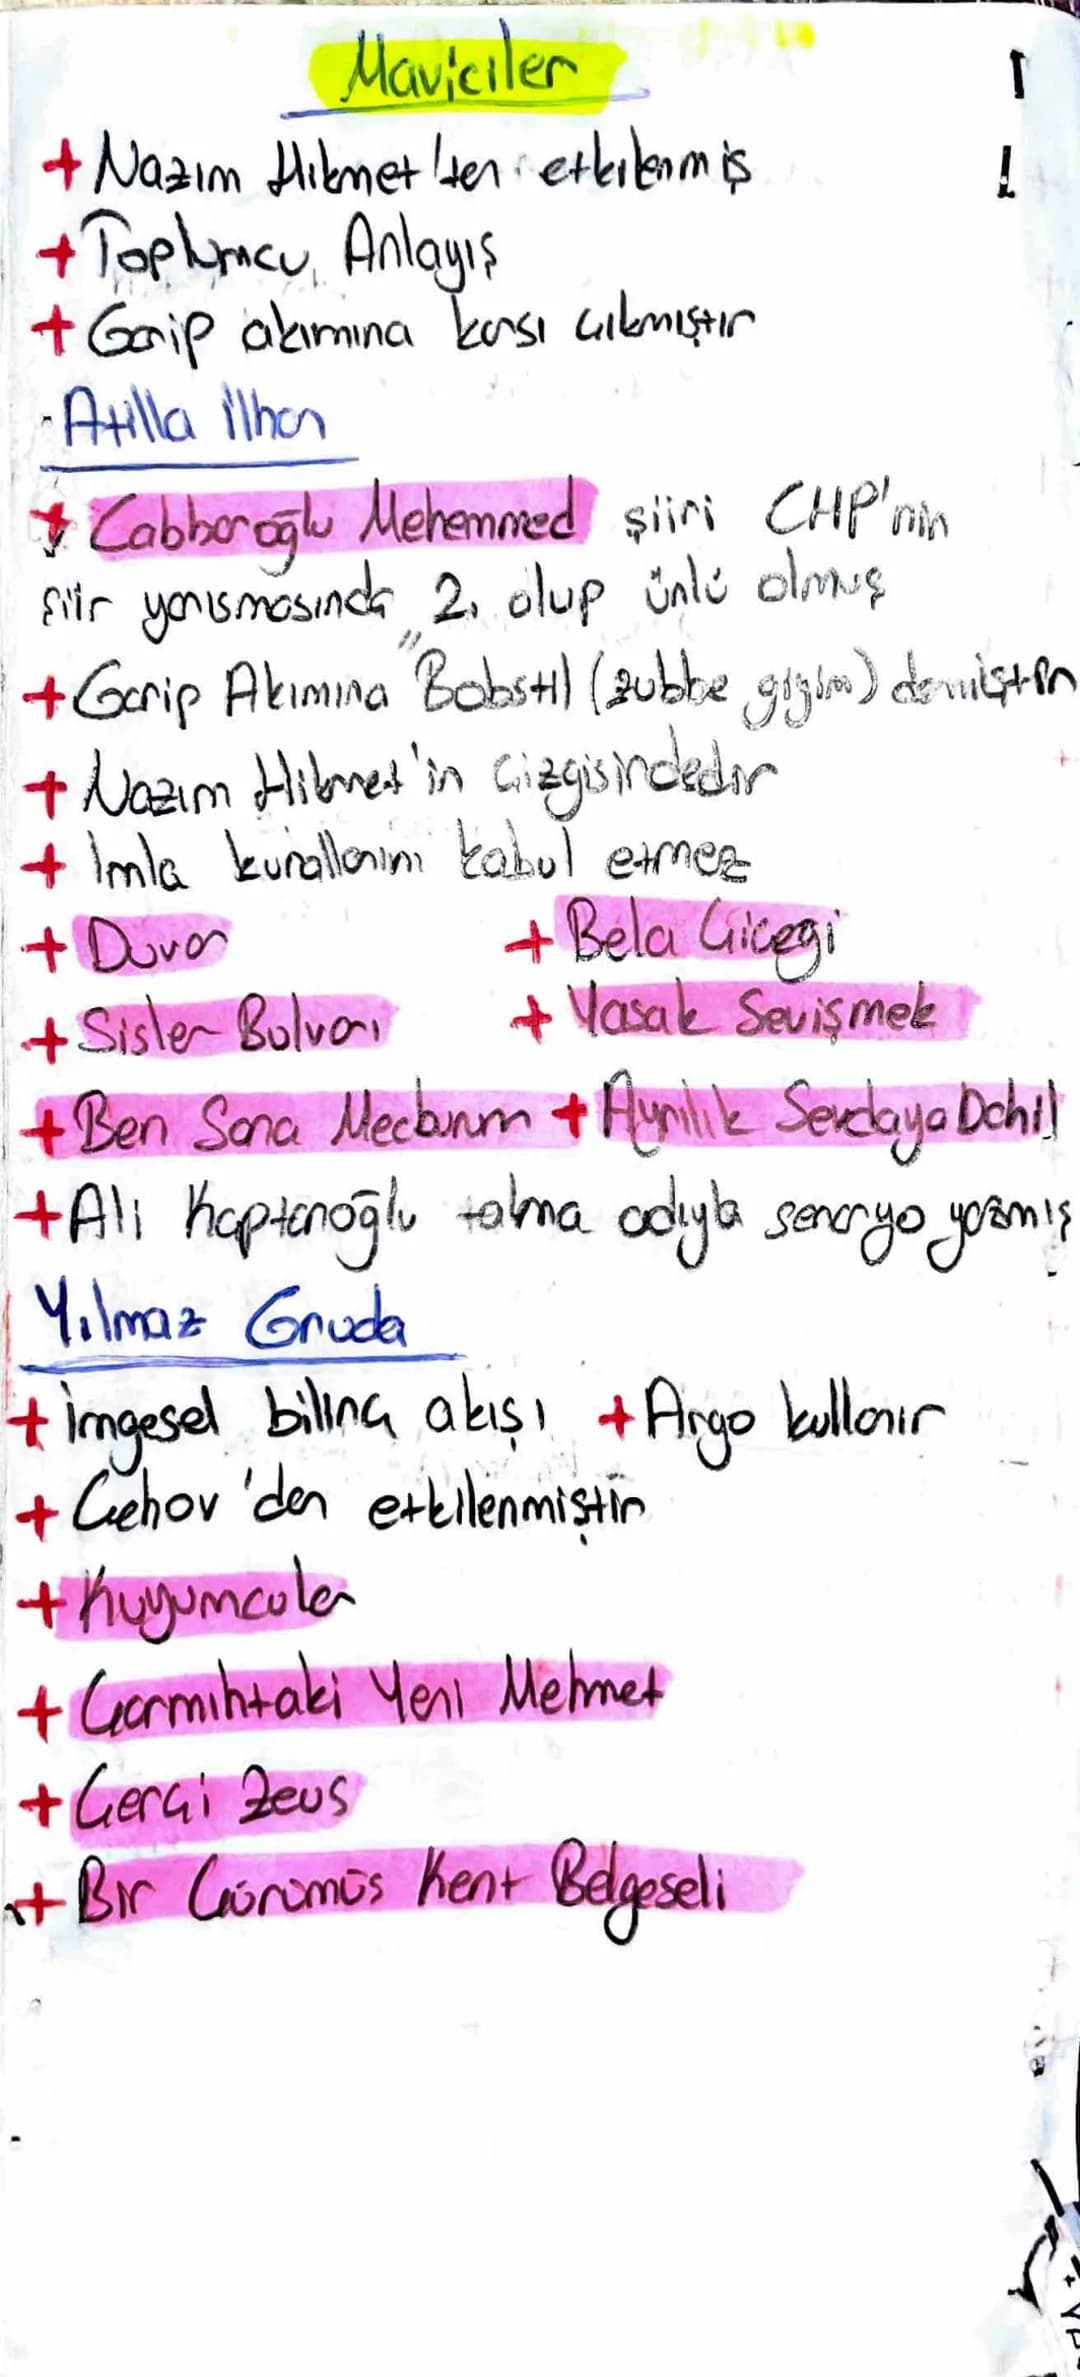 Maviciler
+ Nazım Hikmet'ten etkilenmiş
+ Toplumcu Anlayış
+ Garip akımına karşı çıkmıştır
- Atilla İlhan
+ Cabbaroğlu Mehemmed şiiri CHP'nin
şiir yarışmasında 2. olup ünlü olmuş
+ Garip Akımına "Bobstil (zubbe giyim) demiştir
+ Nazım Hikmet'in çizgisindedir
+ Imla kurallarını kabul etmez
+ Duvar + Bela Çiçeği
+ Sisler Bulvarı + Yasak Sevişmek
+ Ben Sana Mecburum + Ayrılık Sevdaya Dahil
+ Ali Kaptanoğlu takma adıyla senaryo yazmış
Yılmaz Gruda
+ İmgesel bilinç akışı + Argo kullanır
+ Çehov'dan etkilenmiştir
+ Kuyumcular
+ Çarmıhtaki Yeni Mehmet
+ Çerçi Zeus
+ Bir Çürümüş Kent Belgeseli